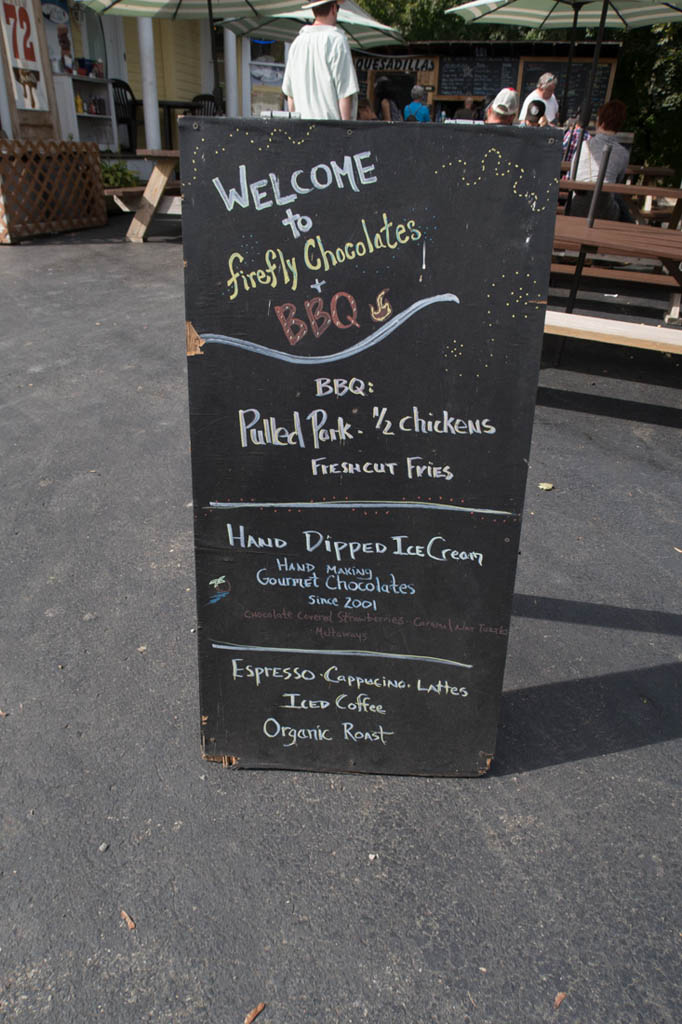 72
QUESADILLAS
WELCOME
to
firefly Chocolates
+
BBQ
BBQ:
Pulled Pork · 1/2 chickens
FRESHCUT FRIES
HAND DIPPED ICE CREAM
HAND MAKING
GOURMET CHOCOLATES
SINCE 2001
Chocolate Covered Strawberries · Caramel Nut
Meltaways
ESPRESSO · CAPPUCINO · LATTES
ICED COFFEE
ORGANIC ROAST